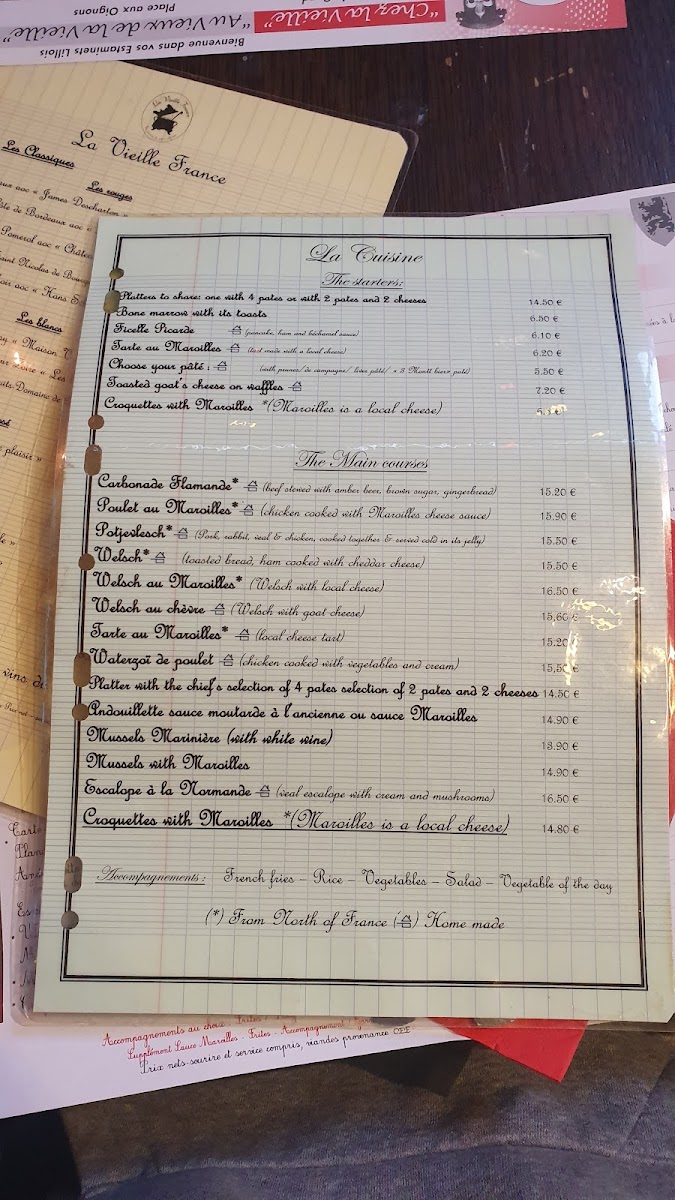 "Chez la Vieille"
"Au Vieux de la Vieille"
Place aux Oignons
Bienvenue dans vos Estaminets Lillois
La Vieille France
Les Classiques
Les rouges
aoc « James Descharton »
de Bordeaux aoc «
Pomerol aoc «
Nicolas de
aoc «
Les blancs
« Maison
plaisir »
vins
La Cuisine
The starters:
Platters to share: one with 4 pates or with 2 pates and 2 cheeses 14.50 €
Bone marrow with its toasts 6.50 €
Ficelle Picarde (pancake, ham and béchamel sauce) 6.10 €
Tarte au Maroilles (tart made with a local cheese) 6.20 €
Choose your pâté : (with prunes/ de campagne/ foie pâté/ + 3 Monts beer paté) 5.50 €
Toasted goat's cheese on waffles 7.20 €
Croquettes with Maroilles *(Maroilles is a local cheese) €
The Main courses
Carbonade Flamande* (beef stewed with amber beer, brown sugar, gingerbread) 15.20 €
Poulet au Maroilles* (chicken cooked with Maroilles cheese sauce) 15.90 €
Potjevlesch* (Pork, rabbit, veal & chicken, cooked together & served cold in its jelly) 15.50 €
Welsch* (toasted bread, ham cooked with cheddar cheese) 15.50 €
Welsch au Maroilles* (Welsch with local cheese) 16.50 €
Welsch au chèvre (Welsch with goat cheese) 15.60 €
Tarte au Maroilles* (local cheese tart) 15.20
Waterzoï de poulet (chicken cooked with vegetables and cream) 15,50 €
Platter with the chief's selection of 4 pates selection of 2 pates and 2 cheeses 14.50 €
Andouillette sauce moutarde à l'ancienne ou sauce Maroilles 14.90 €
Mussels Marinière (with white wine) 13.90 €
Mussels with Maroilles 14.90 €
Escalope à la Normande (veal escalope with cream and mushrooms) 16.50 €
Croquettes with Maroilles *(Maroilles is a local cheese) 14.80 €
Accompagnements : French fries – Rice – Vegetables – Salad – Vegetable of the day
(*) From North of France ( ) Home made
Carte
Accompagnements au choix
Supplément Sauce Maroilles - Frites - Accompagnement -
Prix nets-sourire et service compris, viandes provenance CEE